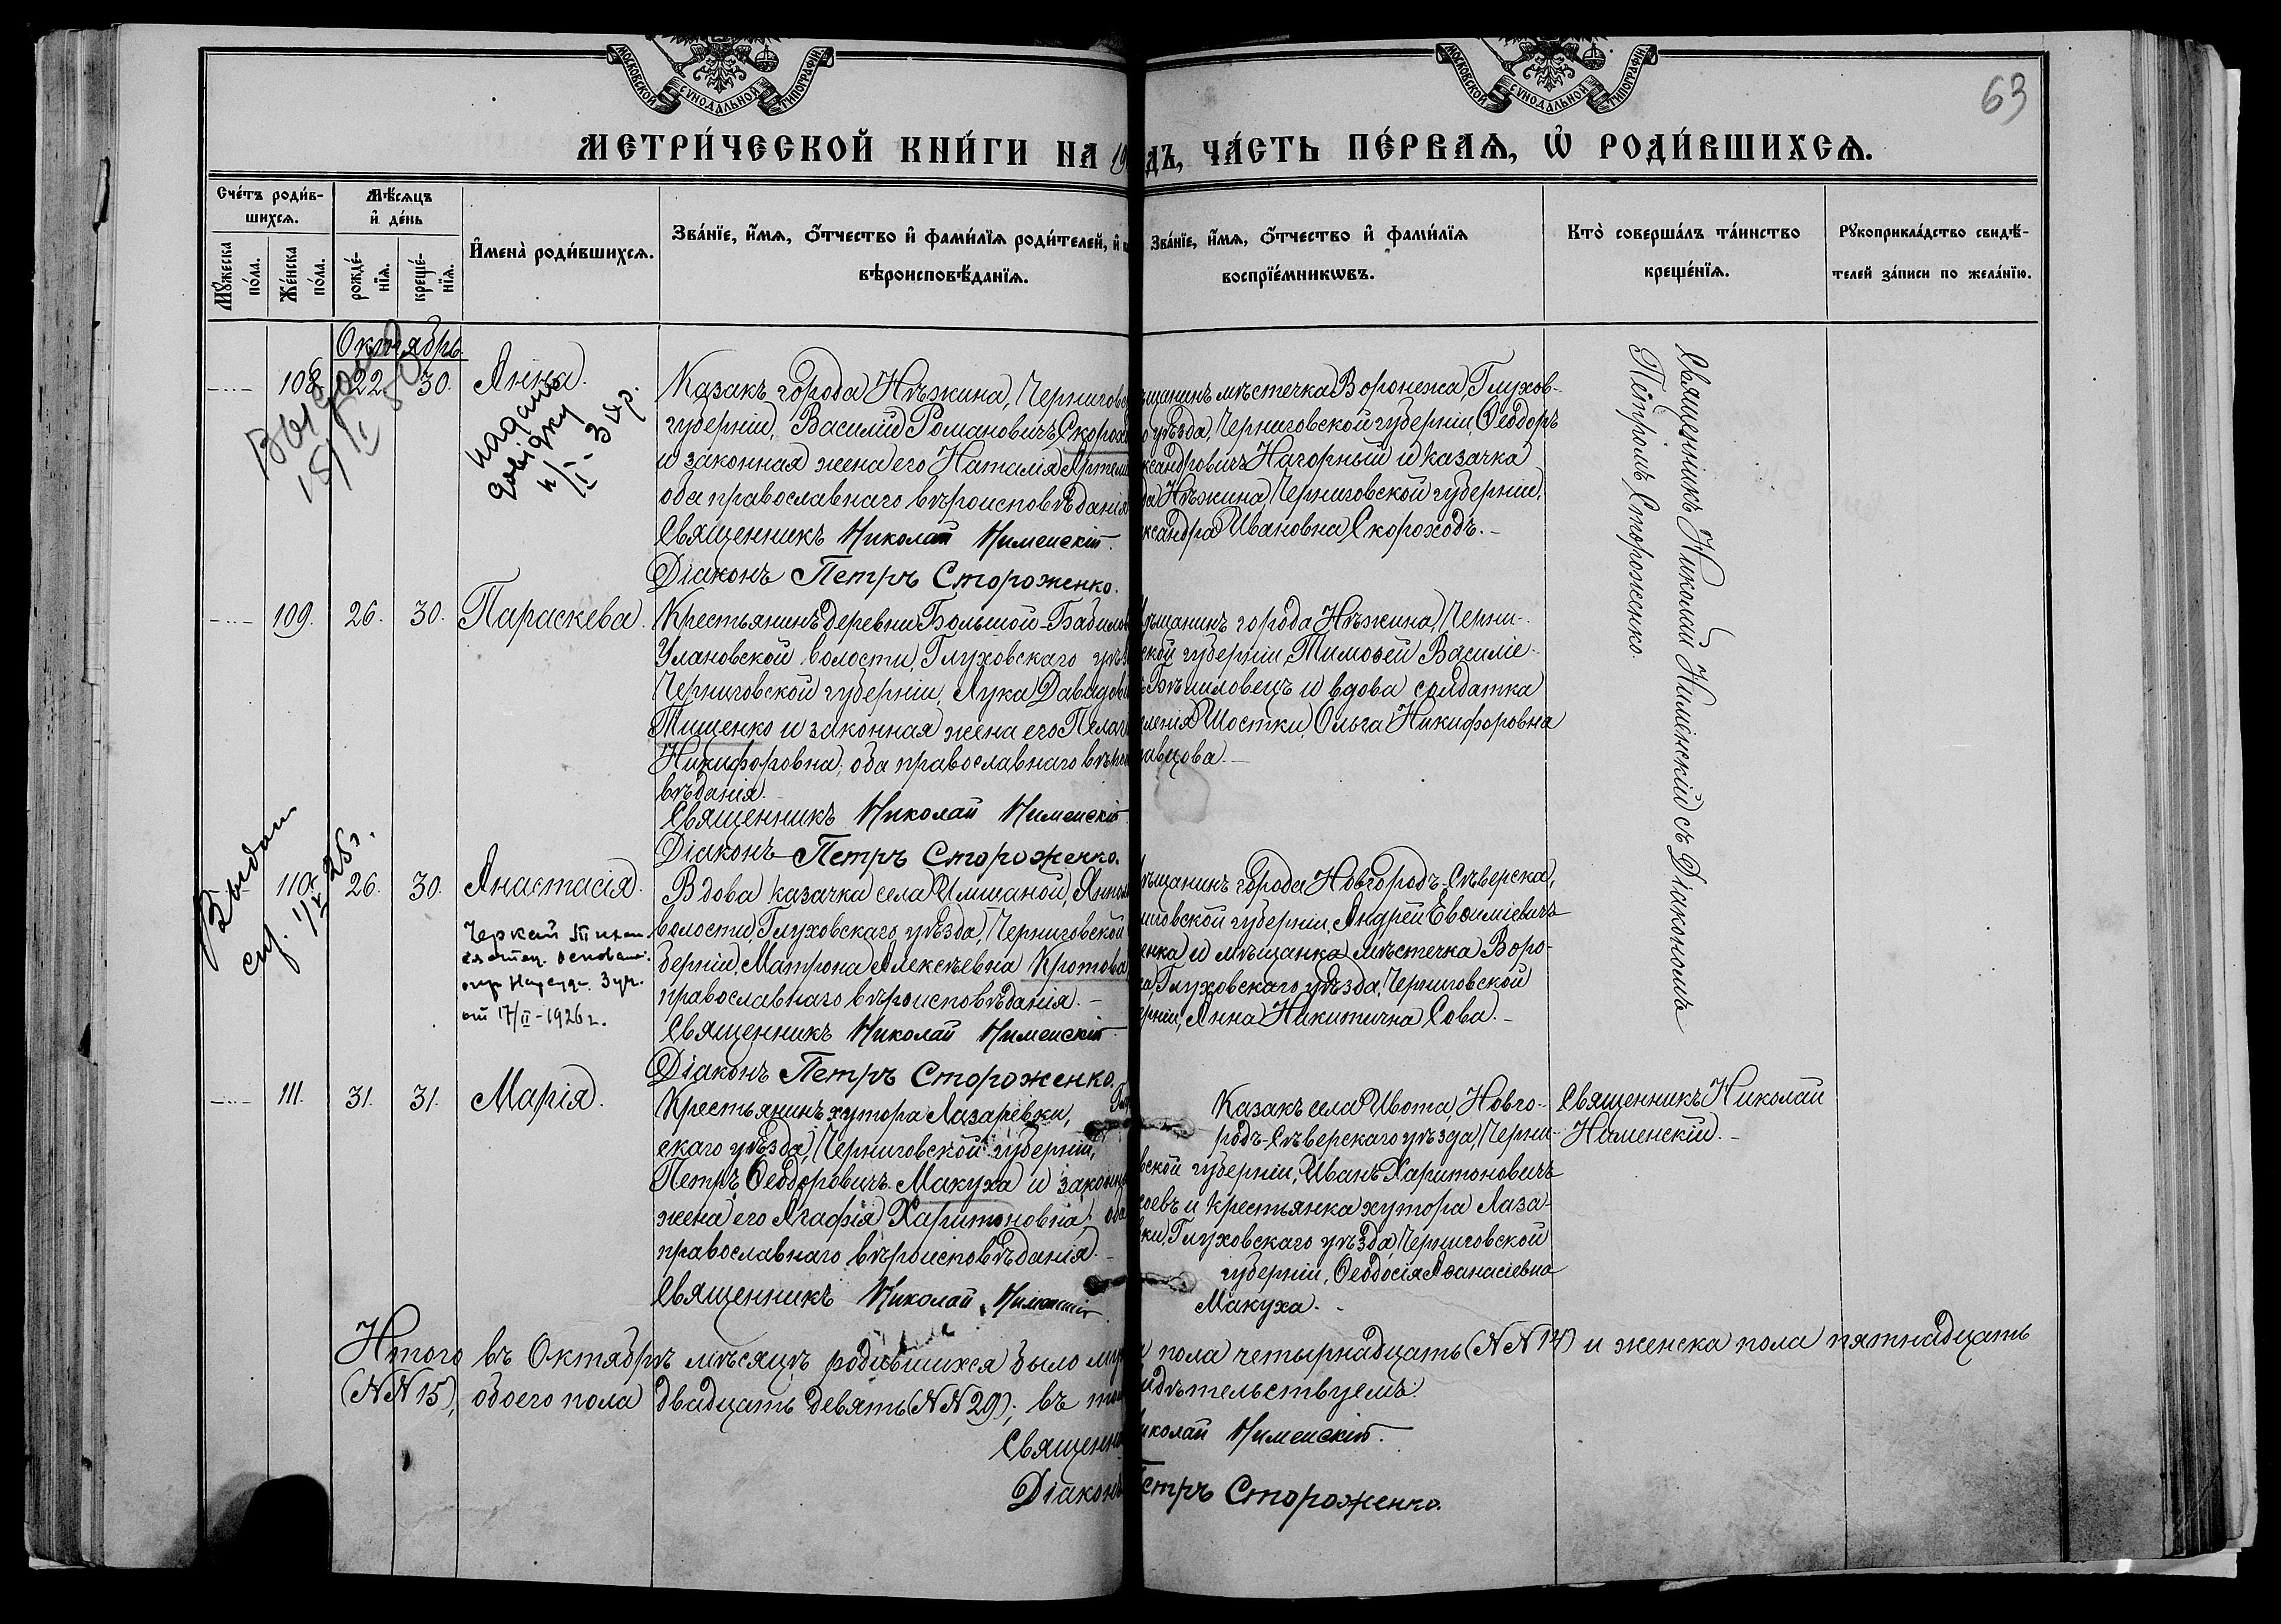 МОСКОВСКОЙ СѴНОДАЛЬНОЙ ТИПОГРАФІИ
МОСКОВСКОЙ СѴНОДАЛЬНОЙ ТИПОГРАФІИ
63
МЕТРИ́ЧЕСКОЙ КНИ́ГИ НА 19
ДЪ, ЧА́СТЬ ПЕ́РВАѦ, Ѡ҆ РОДИ́ВШИХСѦ.
Сче́тъ роди́в-
шихсѧ.
Мꙋ́жеска по́ла.
Же́нска по́ла.
Мѣ́сѧцъ
и҆ де́нь
рожде́-
нїѧ.
креще́-
нїѧ.
И҆мена̀ роди́вшихсѧ.
Зва́нїе, и҆́мѧ, ѻ҆́тчество и҆ фами́лїѧ роди́телей, и҆
вѣроисповѣ́данїѧ.
Зва́нїе, и҆́мѧ, ѻ҆́тчество и҆ фами́лїѧ
воспрїе́мникѡвъ.
Кто̀ соверша́лъ та́инство
креще́нїѧ.
Рꙋкоприкла́дство свидѣ́-
телей за́писи по жела́нїю.
Октябрь.
108. 22. 30. Анна.
надано
довідку
Казакъ города Нѣжина, Черниговс
губерніи, Василій Романовичъ Скорохо
и законная жена его Наталія Артем
оба православнаго вѣроисповѣданія
Священникъ Николай Нименскій.
Діаконъ Петръ Стороженко.
ѣщанинъ мѣстечка Воронежа, Глухов-
о уѣзда, Черниговской губерніи, Ѳеодоръ
ксандровичъ Нагорный и казачка
да Нѣжина, Черниговской губерніи,
ксандра Ивановна Скороходъ. -
Священникъ Николай Нименскій съ Діакономъ
Петромъ Стороженко.
109. 26. 30. Параскева.
Крестьянинъ деревни Большой-Бабимов
Улановской волости, Глуховскаго уѣз
Черниговской губерніи, Лука Давидови
Тищенко и законная жена его Пелаг
Никифоровна, оба православнаго вѣро
вѣданія.
Священникъ Николай Нименскій
Діаконъ Петръ Стороженко.
ѣщанинъ города Нѣжина, Черни-
ской губерніи, Тимоѳей Василіе-
и вдова солдатка
ленія Шостки, Ольга Никифоровна
авцова. -
Выдан
110. 26. 30. Анастасія.
от 17/II-1926 г.
Вдова казачка села Имшаной, Ямпол
волости, Глуховскаго уѣзда, Черниговской
берніи, Матрона Алексѣевна Кротова
православнаго вѣроисповѣданія. -
Священникъ Николай Нименскій.
Діаконъ Петръ Стороженко.
ѣщанинъ города Новгородъ-Сѣверска,
иговской губерніи, Андрей Евѳиміевичъ
енка и мѣщанка мѣстечка Воро-
а, Глуховскаго уѣзда, Черниговской
рніи, Анна Никитична Сова. -
111. 31. 31. Марія.
Крестьянинъ хутора Лазаревки, Глу
скаго уѣзда, Черниговской губерніи,
Петръ Ѳеодоровичъ Макуха и законна
жена его Агафія Харитоновна, оба
православнаго вѣроисповѣданія. -
Священникъ Николай Нименскій
Казакъ села Ивота, Новго-
родъ-Сѣверскаго уѣзда, Черни-
вской губерніи, Иванъ Харитоновичъ
соевъ и крестьянка хутора Лаза-
вки, Глуховскаго уѣзда, Черниговской
губерніи, Ѳеодосія Аѳанасіевна
Макуха. -
Священникъ Николай
Нименскій. -
Итого въ Октябрѣ мѣсяцѣ родившихся было муж
а пола четырнадцать (NN 14) и женска пола пятнадцать
(NN 15), обоего пола двадцать девять (NN 29); въ том
идѣтельствуемъ.
Священни
иколай Нименскій.
Діаконъ
Петръ Стороженко.